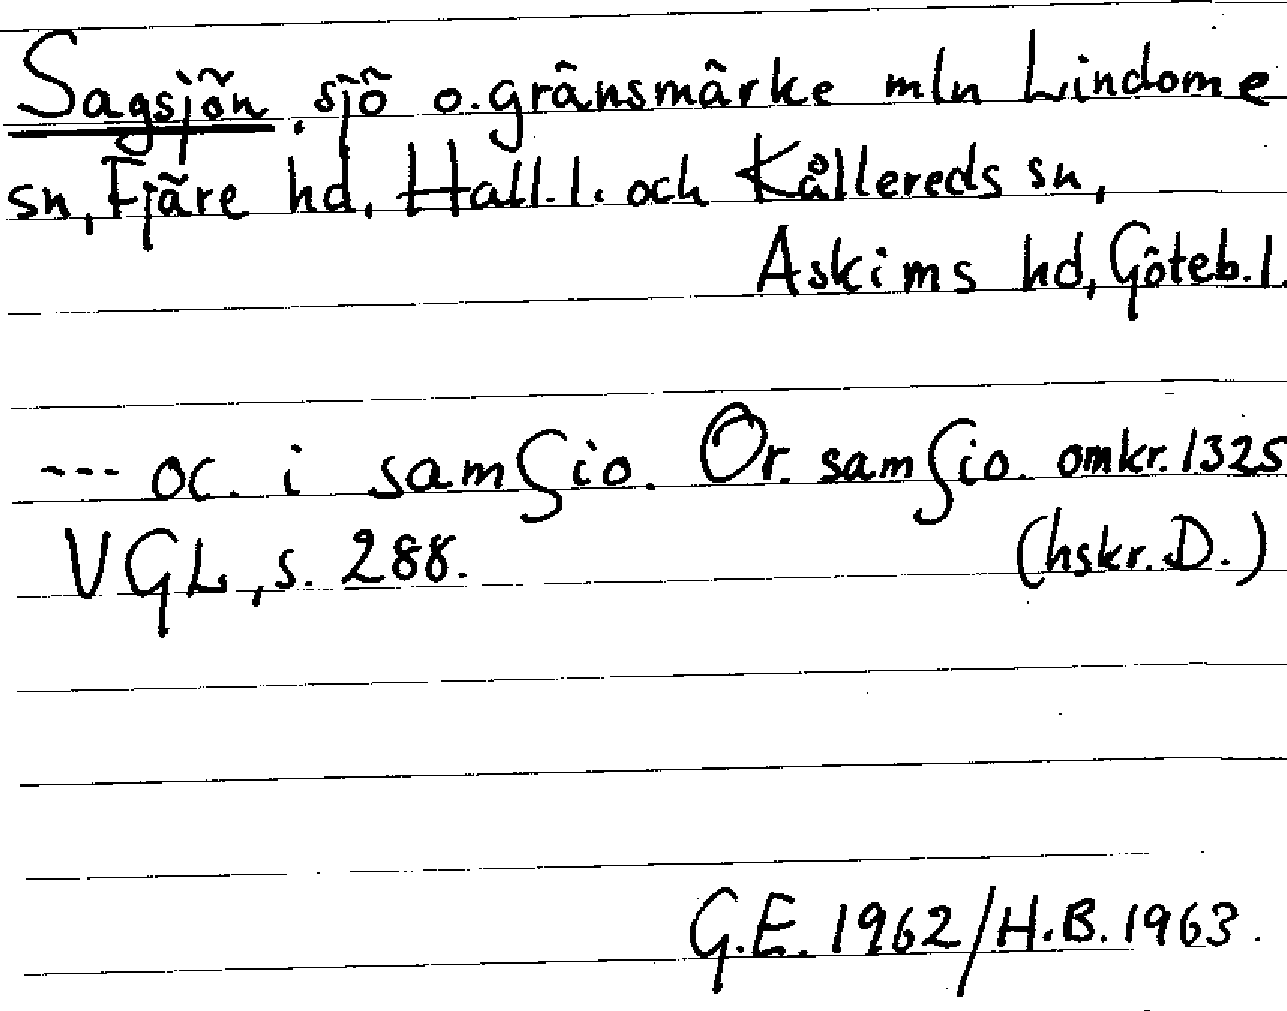 Sagsjön, sjö o. gränsmärke mln Lindome
sn, Fjäre hd, Hall. l. och Kållereds sn,
Askims hd, Göteb. l.
--- oc. i samſio. Or. samſio. omkr. 1325
VGL, s. 288. (hskr. D.)
G.E. 1962/H.B. 1963.